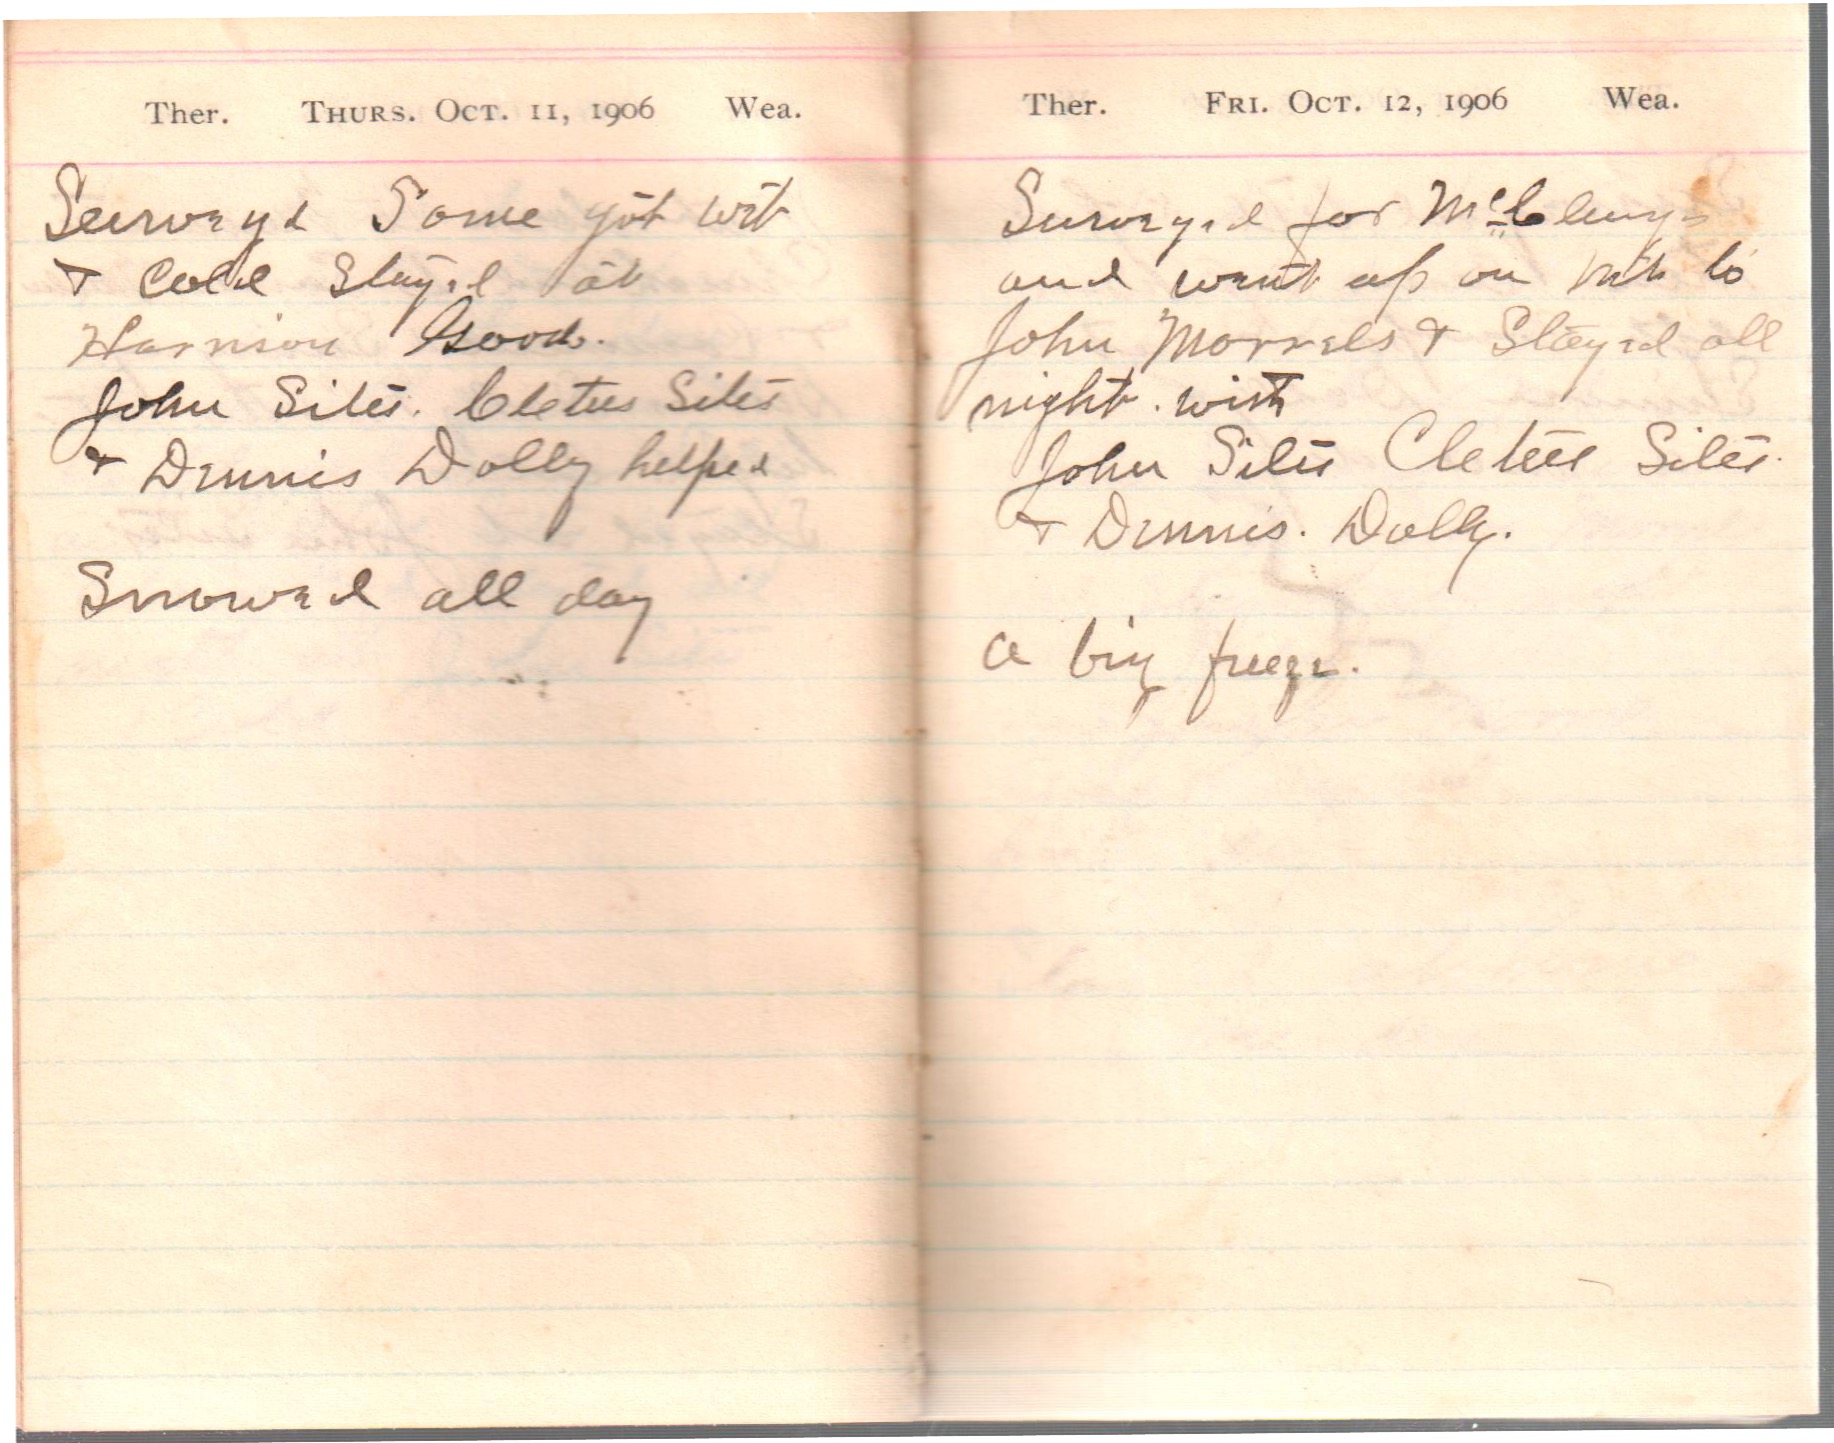 Ther. THURS. OCT. 11, 1906 Wea.
Surveyed Some got wet
& Cold Stayed at
Harrison Good.
John Sites. Cletus Sites
& Dennis Dolly helped
Snowed all day
Ther. FRI. OCT. 12, 1906 Wea.
Surveyed for
and went up on Mtn to
John Morrels & Stayed all
night. with
John Sites Cletus Sites.
& Dennis. Dolly.
a big freeze.